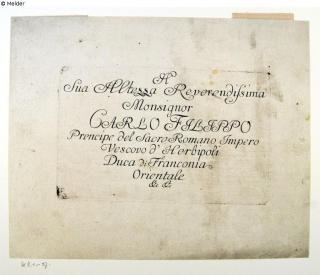 © Melder
A
Sua Altezza Reverendissima
Monsignor
CARLO FILIPPO
Prencipe del Sacro Romano Impero
Vescovo d'Herbipoli
Duca di Franconia
Orientale
&. &.